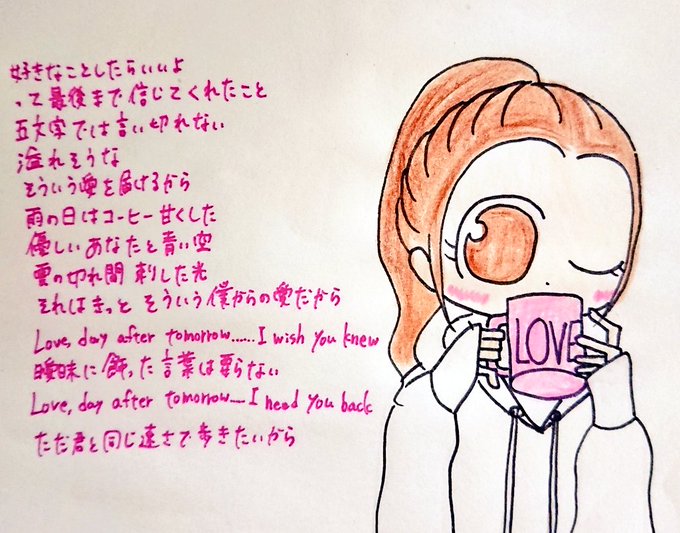 好きなことしたらいいよ
って最後まで信じてくれたこと
五文字では言い切れない
溢れそうな
そういう愛を届けるから
雨の日はコーヒー甘くした
優しいあなたと青い空
雲の切れ間 刺した光
それはきっと そういう僕からの愛だから
Love, day after tomorrow......I wish you knew
曖昧に飾った言葉は要らない
Love, day after tomorrow....I need you back
ただ君と同じ速さで歩きたいから
LOVE